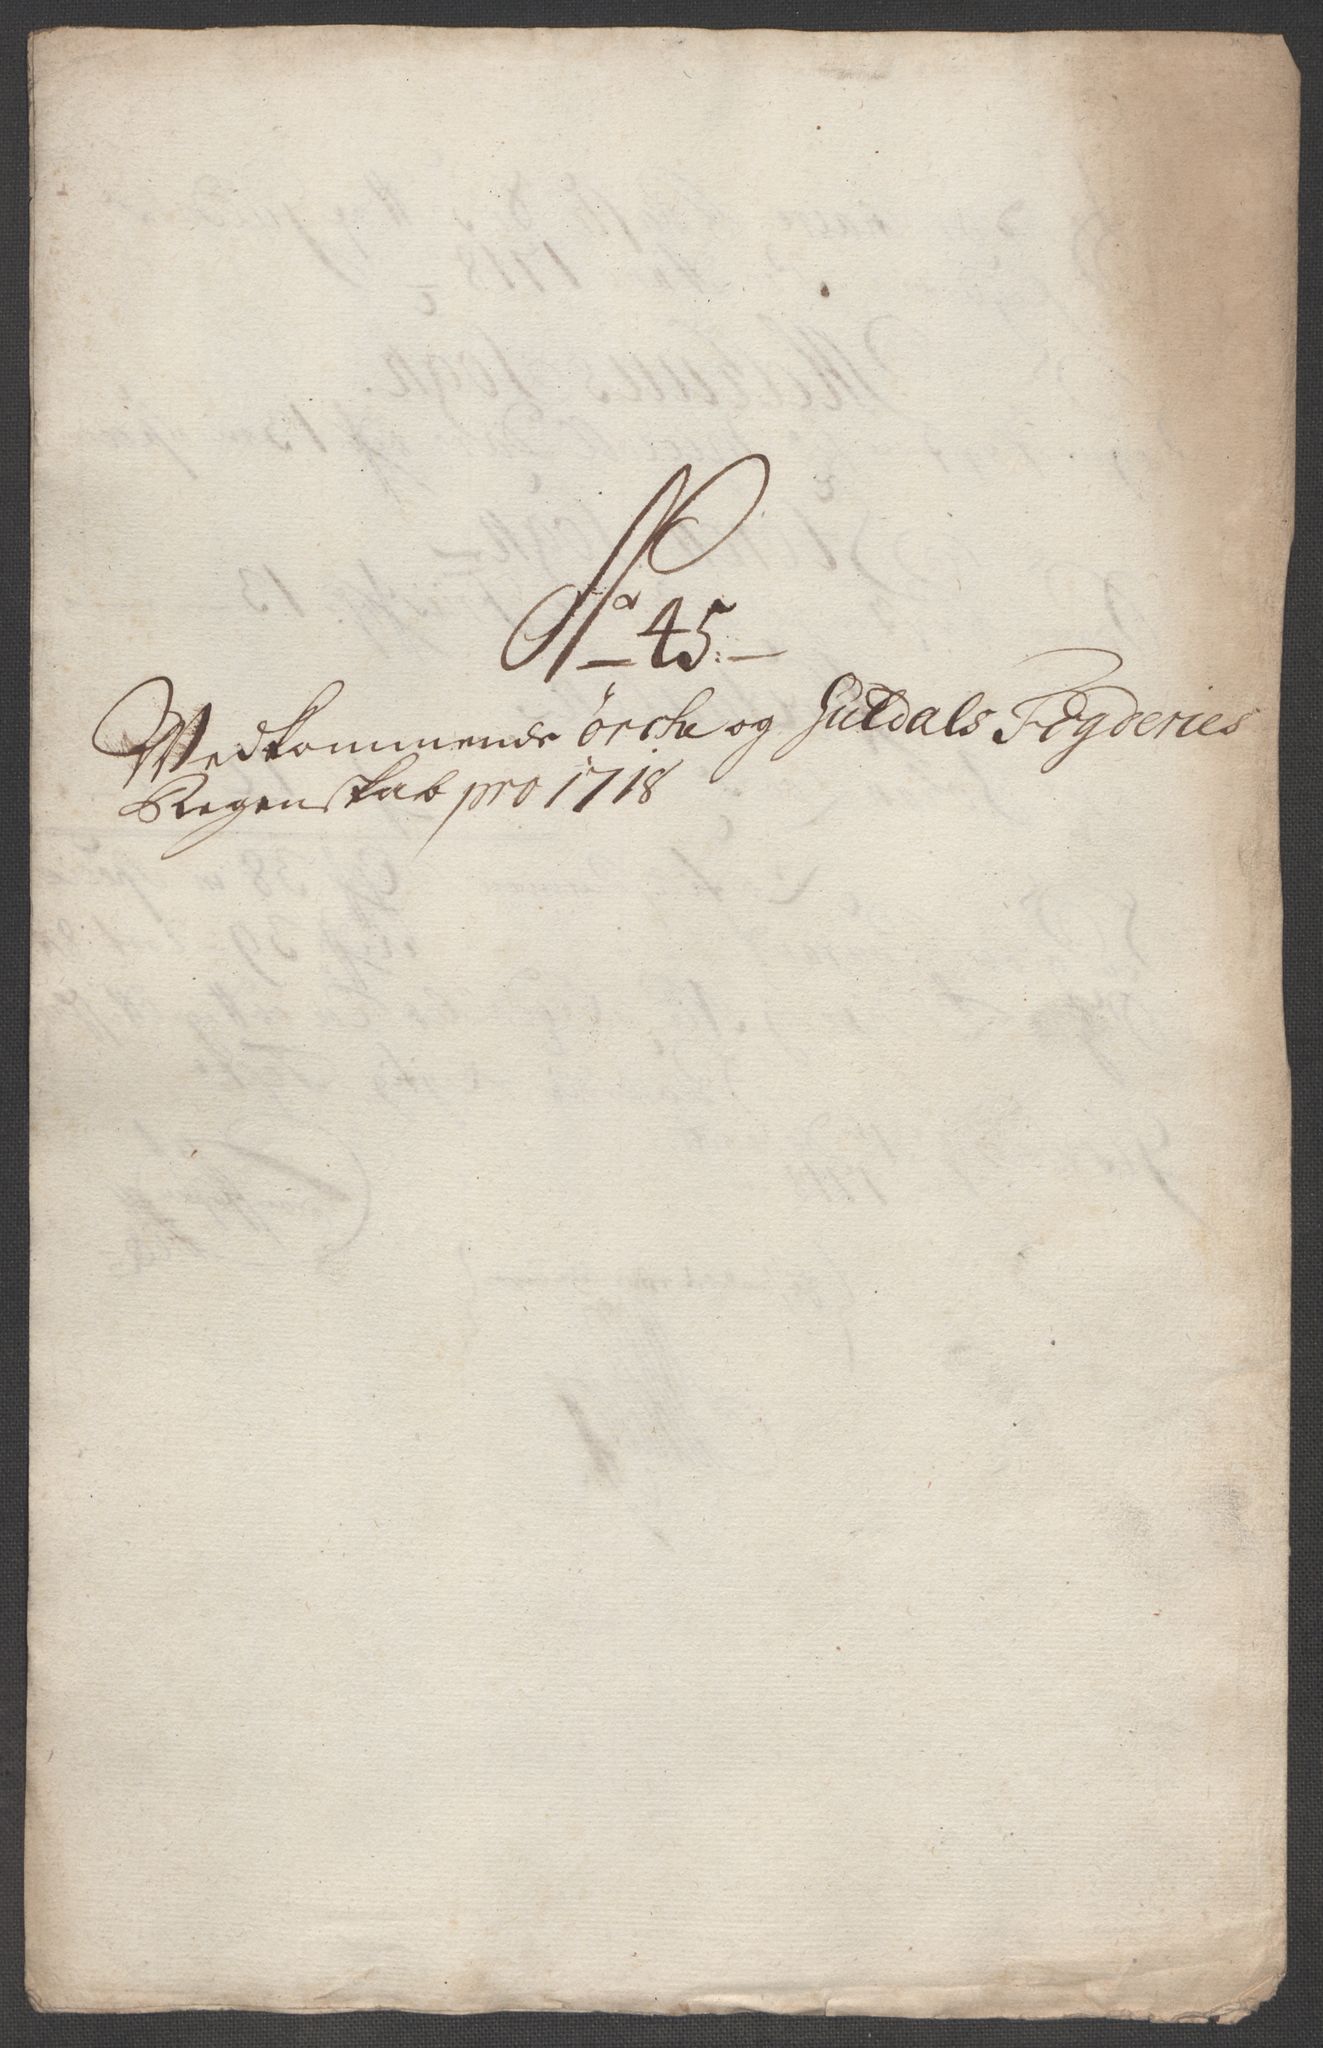 No 45.
Vedkommende örche og Guldals Fogderies
Regenskab pro 1718